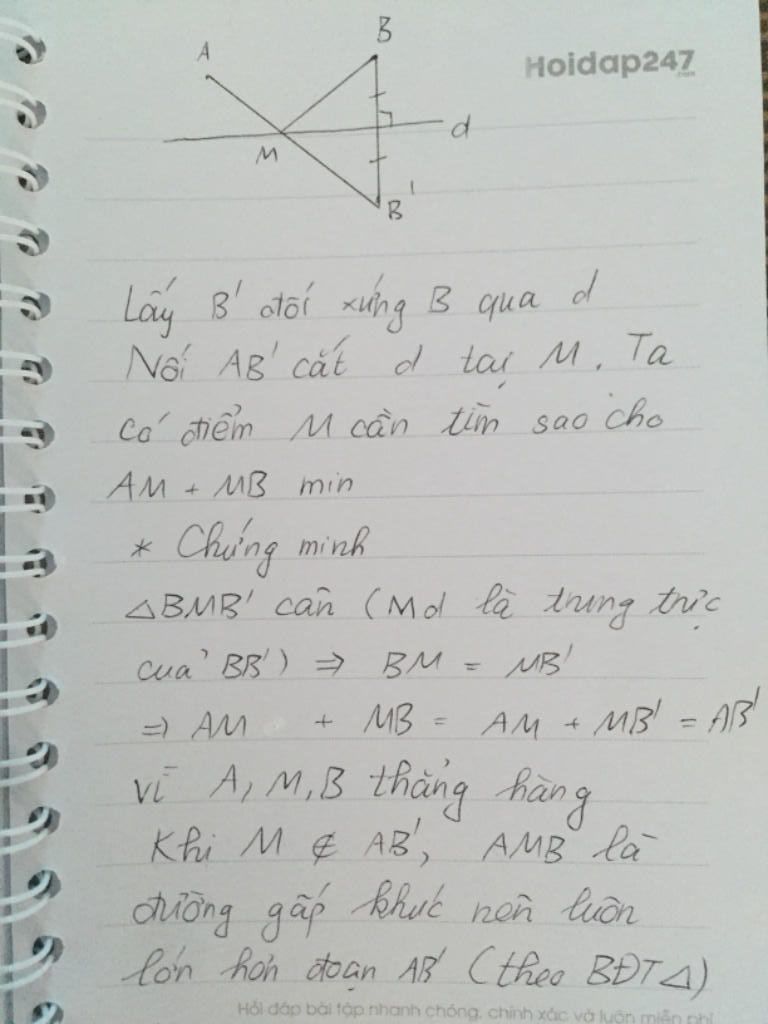 B
A
Hoidap247
.com
d
M
B'
Lấy B' đối xứng B qua d
Nối AB' cắt d tại M. Ta
có điểm M cần tìm sao cho
AM + MB min
* Chứng minh
△BMB' cân (Md là trung trực
của BB') ⇒ BM = MB'
⇒ AM + MB = AM + MB' = AB'
vì A, M, B thẳng hàng
Khi M ∉ AB', AMB là
đường gấp khúc nên luôn
lớn hơn đoạn AB' (theo BĐT△)
Hỏi đáp bài tập nhanh chóng, chính xác và luôn miễn phí